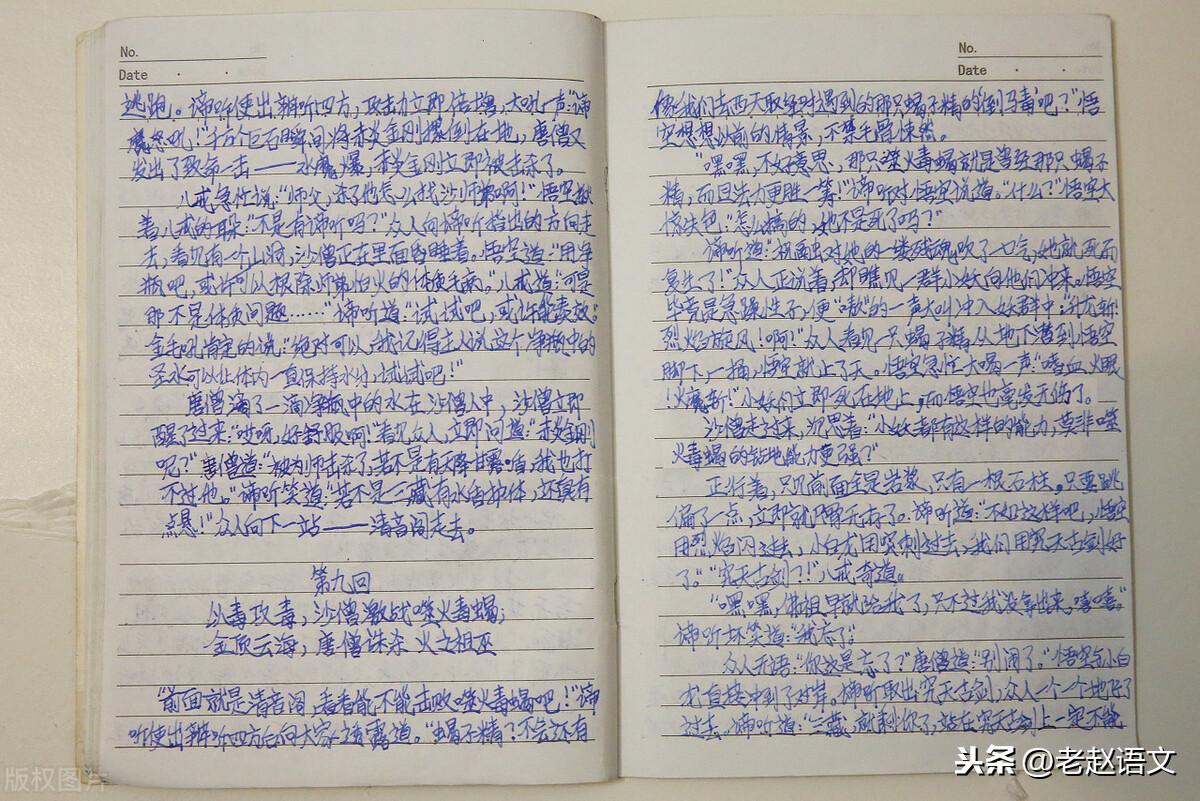 No.
Date
逃跑。谛听使出辨听四方，攻击力立即倍增，大吼一声："谛
听怒吼！"千万个巨石瞬间将赤炎金刚撂倒在地，唐僧又
发出了致命一击——水魔爆，赤炎金刚立即被击杀了。
八戒急忙说："师父，杀了他怎么找沙师弟啊！"悟空揪
着八戒的耳朵："不是有谛听吗？"众人向谛听指出的方向走
去，看见有一个山洞，沙僧正在里面昏睡着。悟空道："用净
瓶吧，或许可以根除师弟怕火的体质毛病。"八戒道："可是
那不是体质问题……"谛听道："试试吧，或许能奏效。"
金毛吼肯定的说："绝对可以，我记得主人说这个净瓶中的
圣水可以让体内一直保持水分，试试吧！"
唐僧滴了一滴净瓶中的水在沙僧人中，沙僧立即
醒了过来："哎呀，好舒服啊！"看见众人，立即问道："赤炎金刚
呢？"唐僧道："被为师击杀了，若不是有天降甘露咱，我也打
不过他。"谛听笑道："若不是三藏有水盾护体，还真有
点悬！"众人向下一站——清音阁走去。
第九回
以毒攻毒，沙僧激战噬火毒蝎；
金顶云海，唐僧诛杀火之祖巫
"前面就是清音阁，看看能不能击败噬火毒蝎吧！"谛
听使出辨听四方后向大家透露道。"蝎子精？不会还有
No.
Date
像我们去西天取经时遇到的那只蝎子精的'倒马毒'吧？"悟
空想想以前的情景，不禁毛骨悚然。
"嘿嘿，不好意思，那只噬火毒蝎就是曾经那只蝎子
精，而且法力更胜一筹！"谛听对悟空说道。"什么？"悟空大
惊失色："怎么搞的，她不是死了吗？"
谛听道："祝融虫对他的一缕残魂吹了一口气，她就死而
复生了！"众人正说着，却瞧见一群小妖向他们冲来。悟空
毕竟是急躁性子，便"嗷"的一声大叫冲入妖群中："升龙斩！
烈焰旋风！啊！"众人看见一只蝎子精从地下遁到悟空
脚下，一捅，悟空就上了天。悟空急忙大喝一声："嗜血火眼
！火魔斩！"小妖们立即死在地上，而悟空也毫发无伤了。
沙僧走过来，沉思着："小妖都有这样的能力，莫非噬
火毒蝎的钻地能力更强？"
正行着，只见前面全是岩浆，只有一根石柱。只要跳
偏了一点，立即就尸骨无存了。谛听道："不如这样吧，悟空
用烈焰闪过去，小白龙用突刺过去，我们用究天古剑好
了。""究天古剑？！"八戒奇道。
"嘿嘿，佛祖早就给我了，只不过我没拿出来，嘻嘻。"
谛听坏笑道："我忘了。"
众人无语："你这是忘了？"唐僧道："别闹了。"悟空与小白
龙直接冲到了对岸。谛听取出究天古剑，众人一个一个地飞了
过去。谛听道："三藏，就剩你了，站在究天古剑上一定不能
版权图片
头条@老赵语文